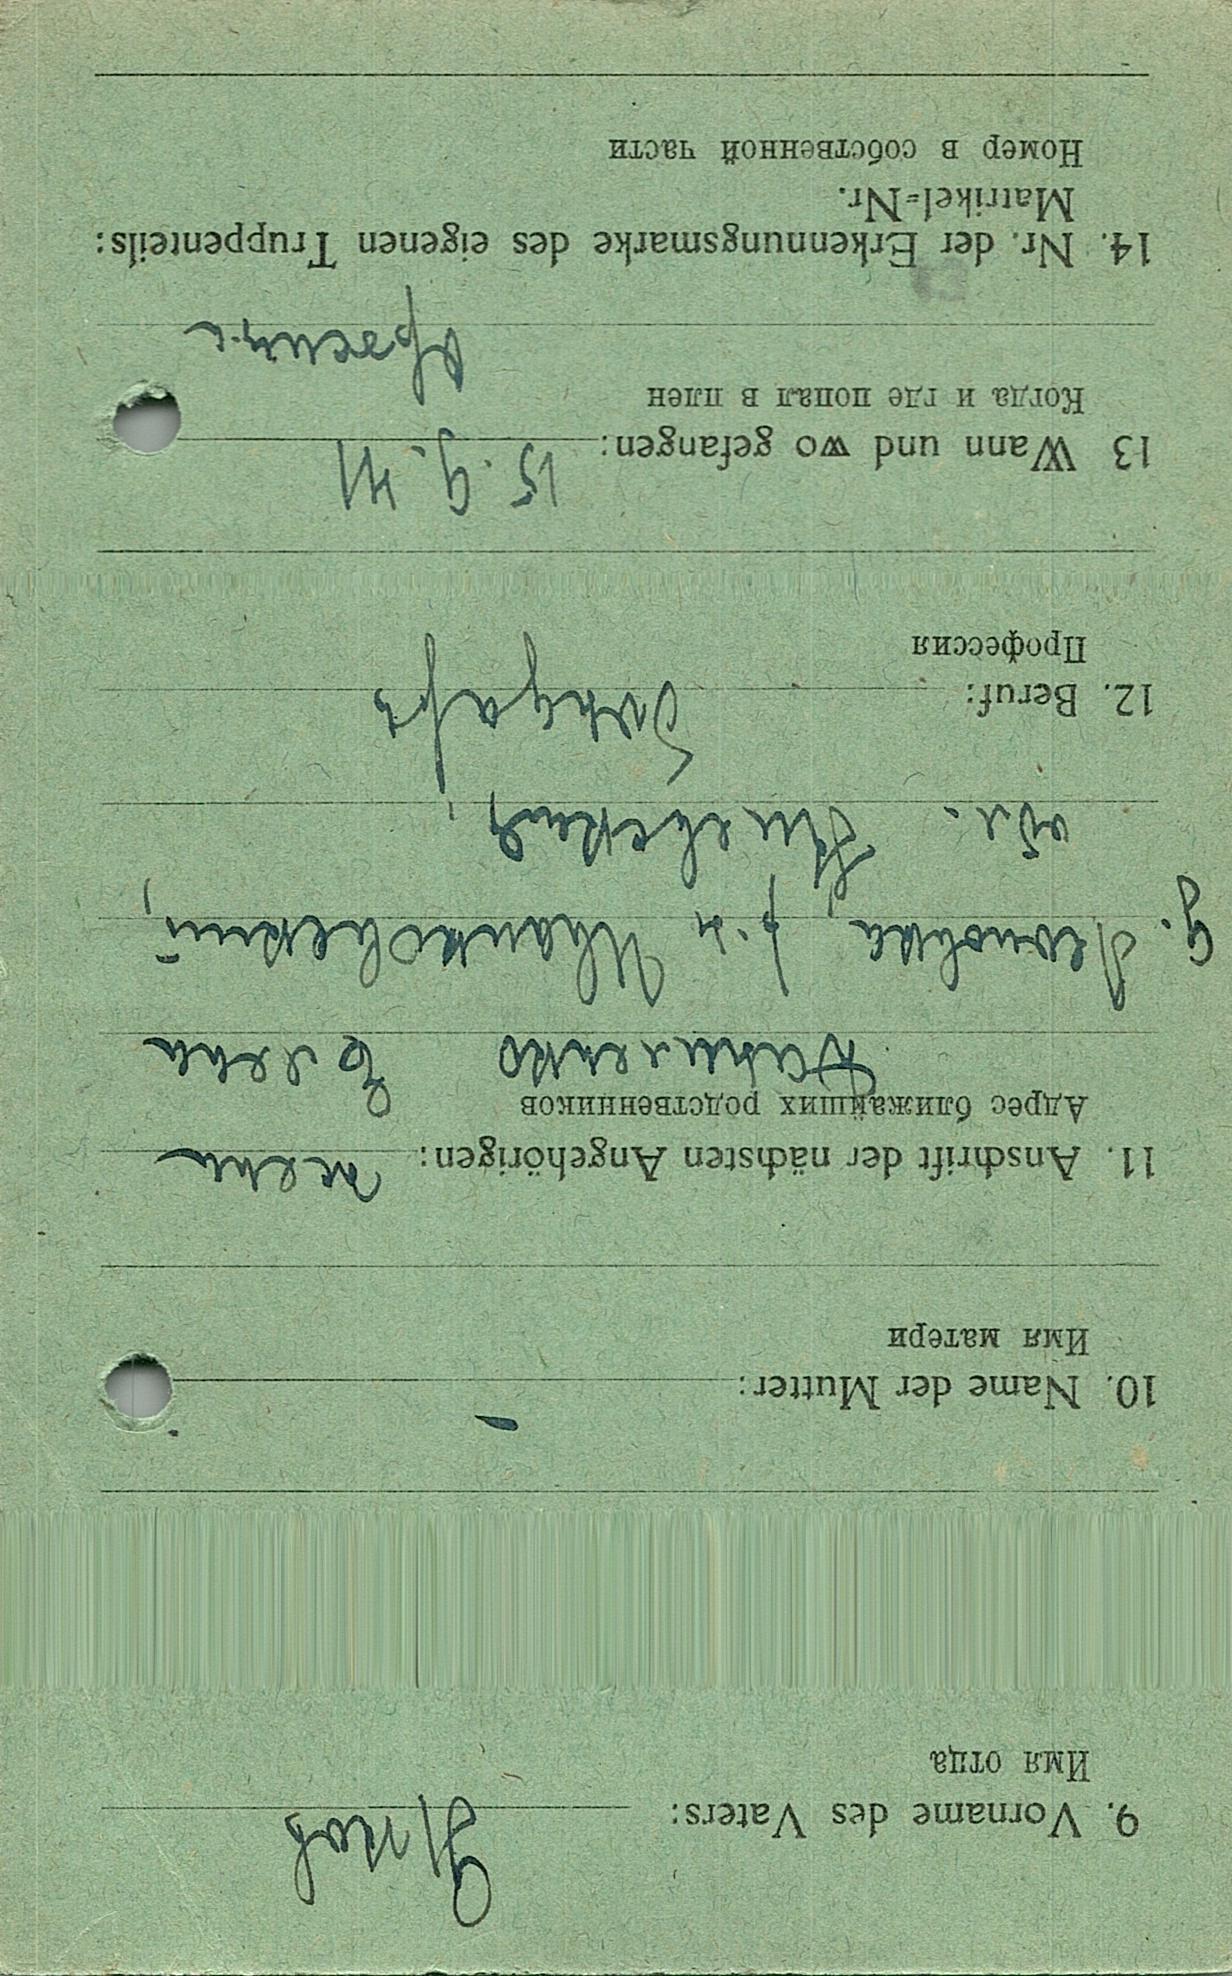 9. Vorname des Vaters: Яков
Имя отца
10. Name der Mutter: –
Имя матери
11. Anschrift der nächsten Angehörigen: жена
Адрес ближайших родственников
Елена
д. р-н Иванковский,
обл. Киевская,
12. Beruf:
Профессия
13 Wann und wo gefangen: 15. 9. 41
Когда и где попал в плен
14. Nr. der Erkennungsmarke des eigenen Truppenteils:
Matrikel=Nr.
Номер в собственной части